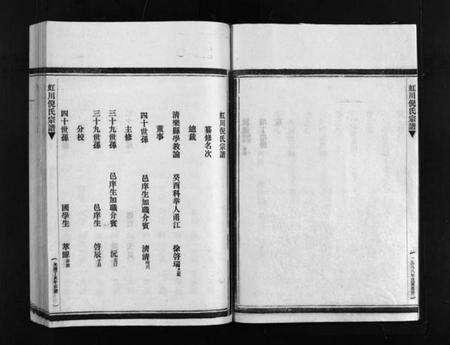 虹川倪氏宗譜
纂修名次
總裁
清樂縣學教諭 癸酉科舉人甬江 徐啓瑞
董事
四十世孫 邑庠生加職介賓 濟清
主修
三十九世孫 邑庠生加職介賓 沅
三十九世孫 邑庠生 啓辰
分校
四十世孫 國學生
虹川倪氏宗譜
虹川倪氏宗譜